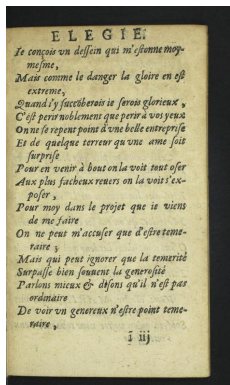 ELEGIE.
Ie conçois vn dessein qui m'estonne moy-
mesme,
Mais comme le danger la gloire en est
extreme,
Quand i'y succõberois ie serois glorieux,
C'est perir noblement que perir à vos yeux
On ne se repent point d'vne belle entreprise
Et de quelque terreur qu'vne ame soit
surprise
Pour en venir à bout on la voit tout oser
Aux plus facheux reuers on la voit s'ex-
poser,
Pour moy dans le projet que ie viens
de me faire
On ne peut m'accuser que d'estre teme-
raire;
Mais qui peut ignorer que la temerité
Surpasse bien souuent la generosité
Parlons mieux & disons qu'il n'est pas
ordinaire
De voir vn genereux n'estre point teme-
raire,
ĩ iij